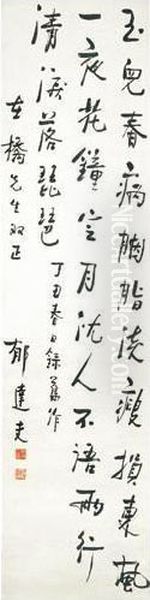 玉兒春病胭脂淺瘦損東風
一夜花鐘定月沈人不語兩行
清淚落琵琶 丁丑春日錄舊作
左橋先生双正
郁達夫